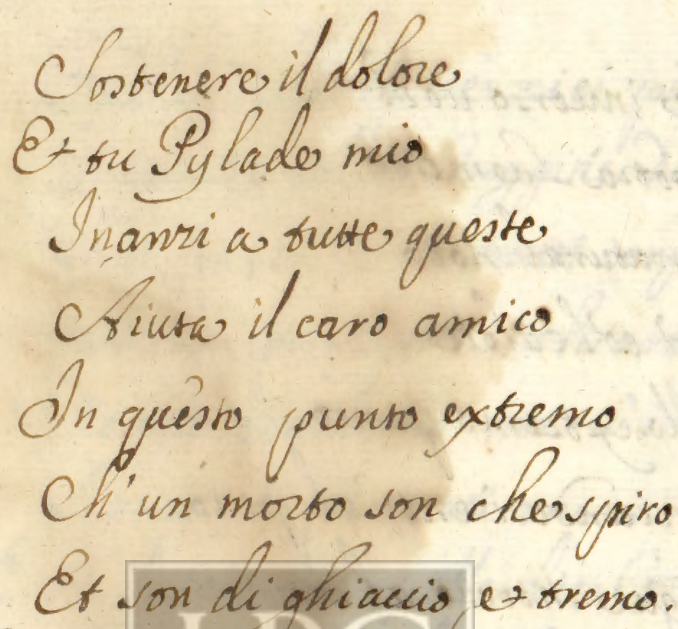 Sostenere il dolore
Et tu Pylade mio
Inanzi a tutte queste
Aiuta il caro amico
In questo punto extremo
Ch'un morto son che spiro
Et son di ghiaccio et tremo.